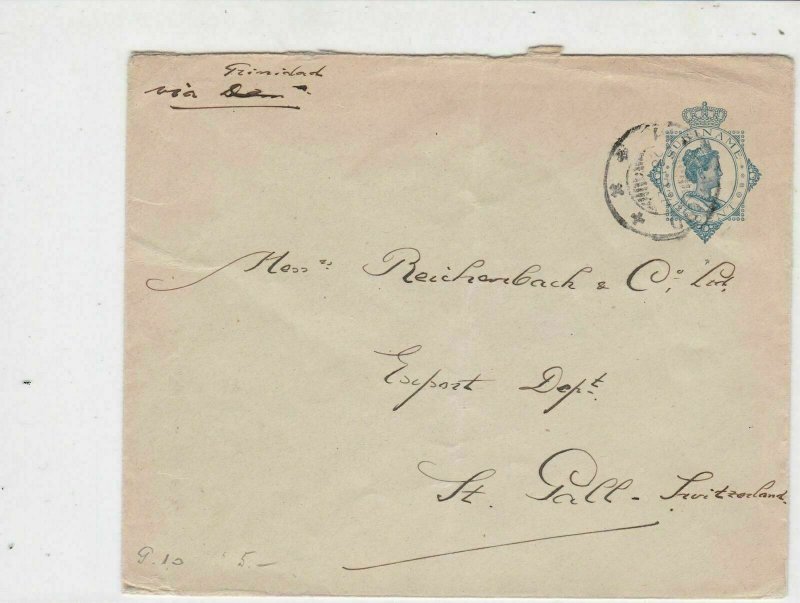 Trinidad
via
SURINAME
Messrs Reichenbach & Co., Ltd.
Export Dept.
St. Gall - Switzerland
G.10 5.-